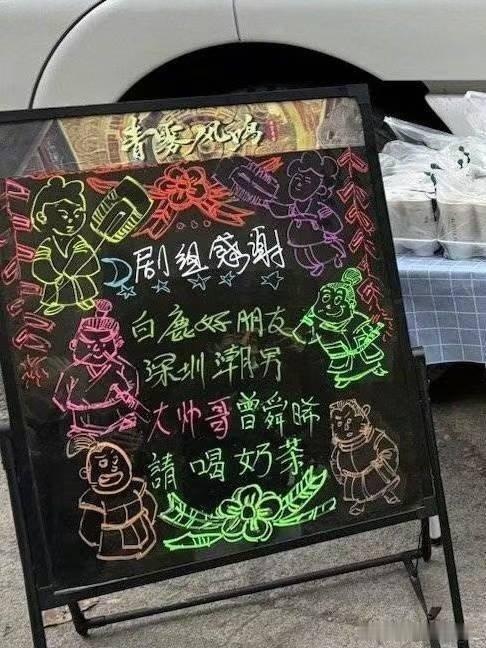 剧组感谢
白鹿好朋友
深圳潮男
大帅哥曾舜晞
請喝奶茶